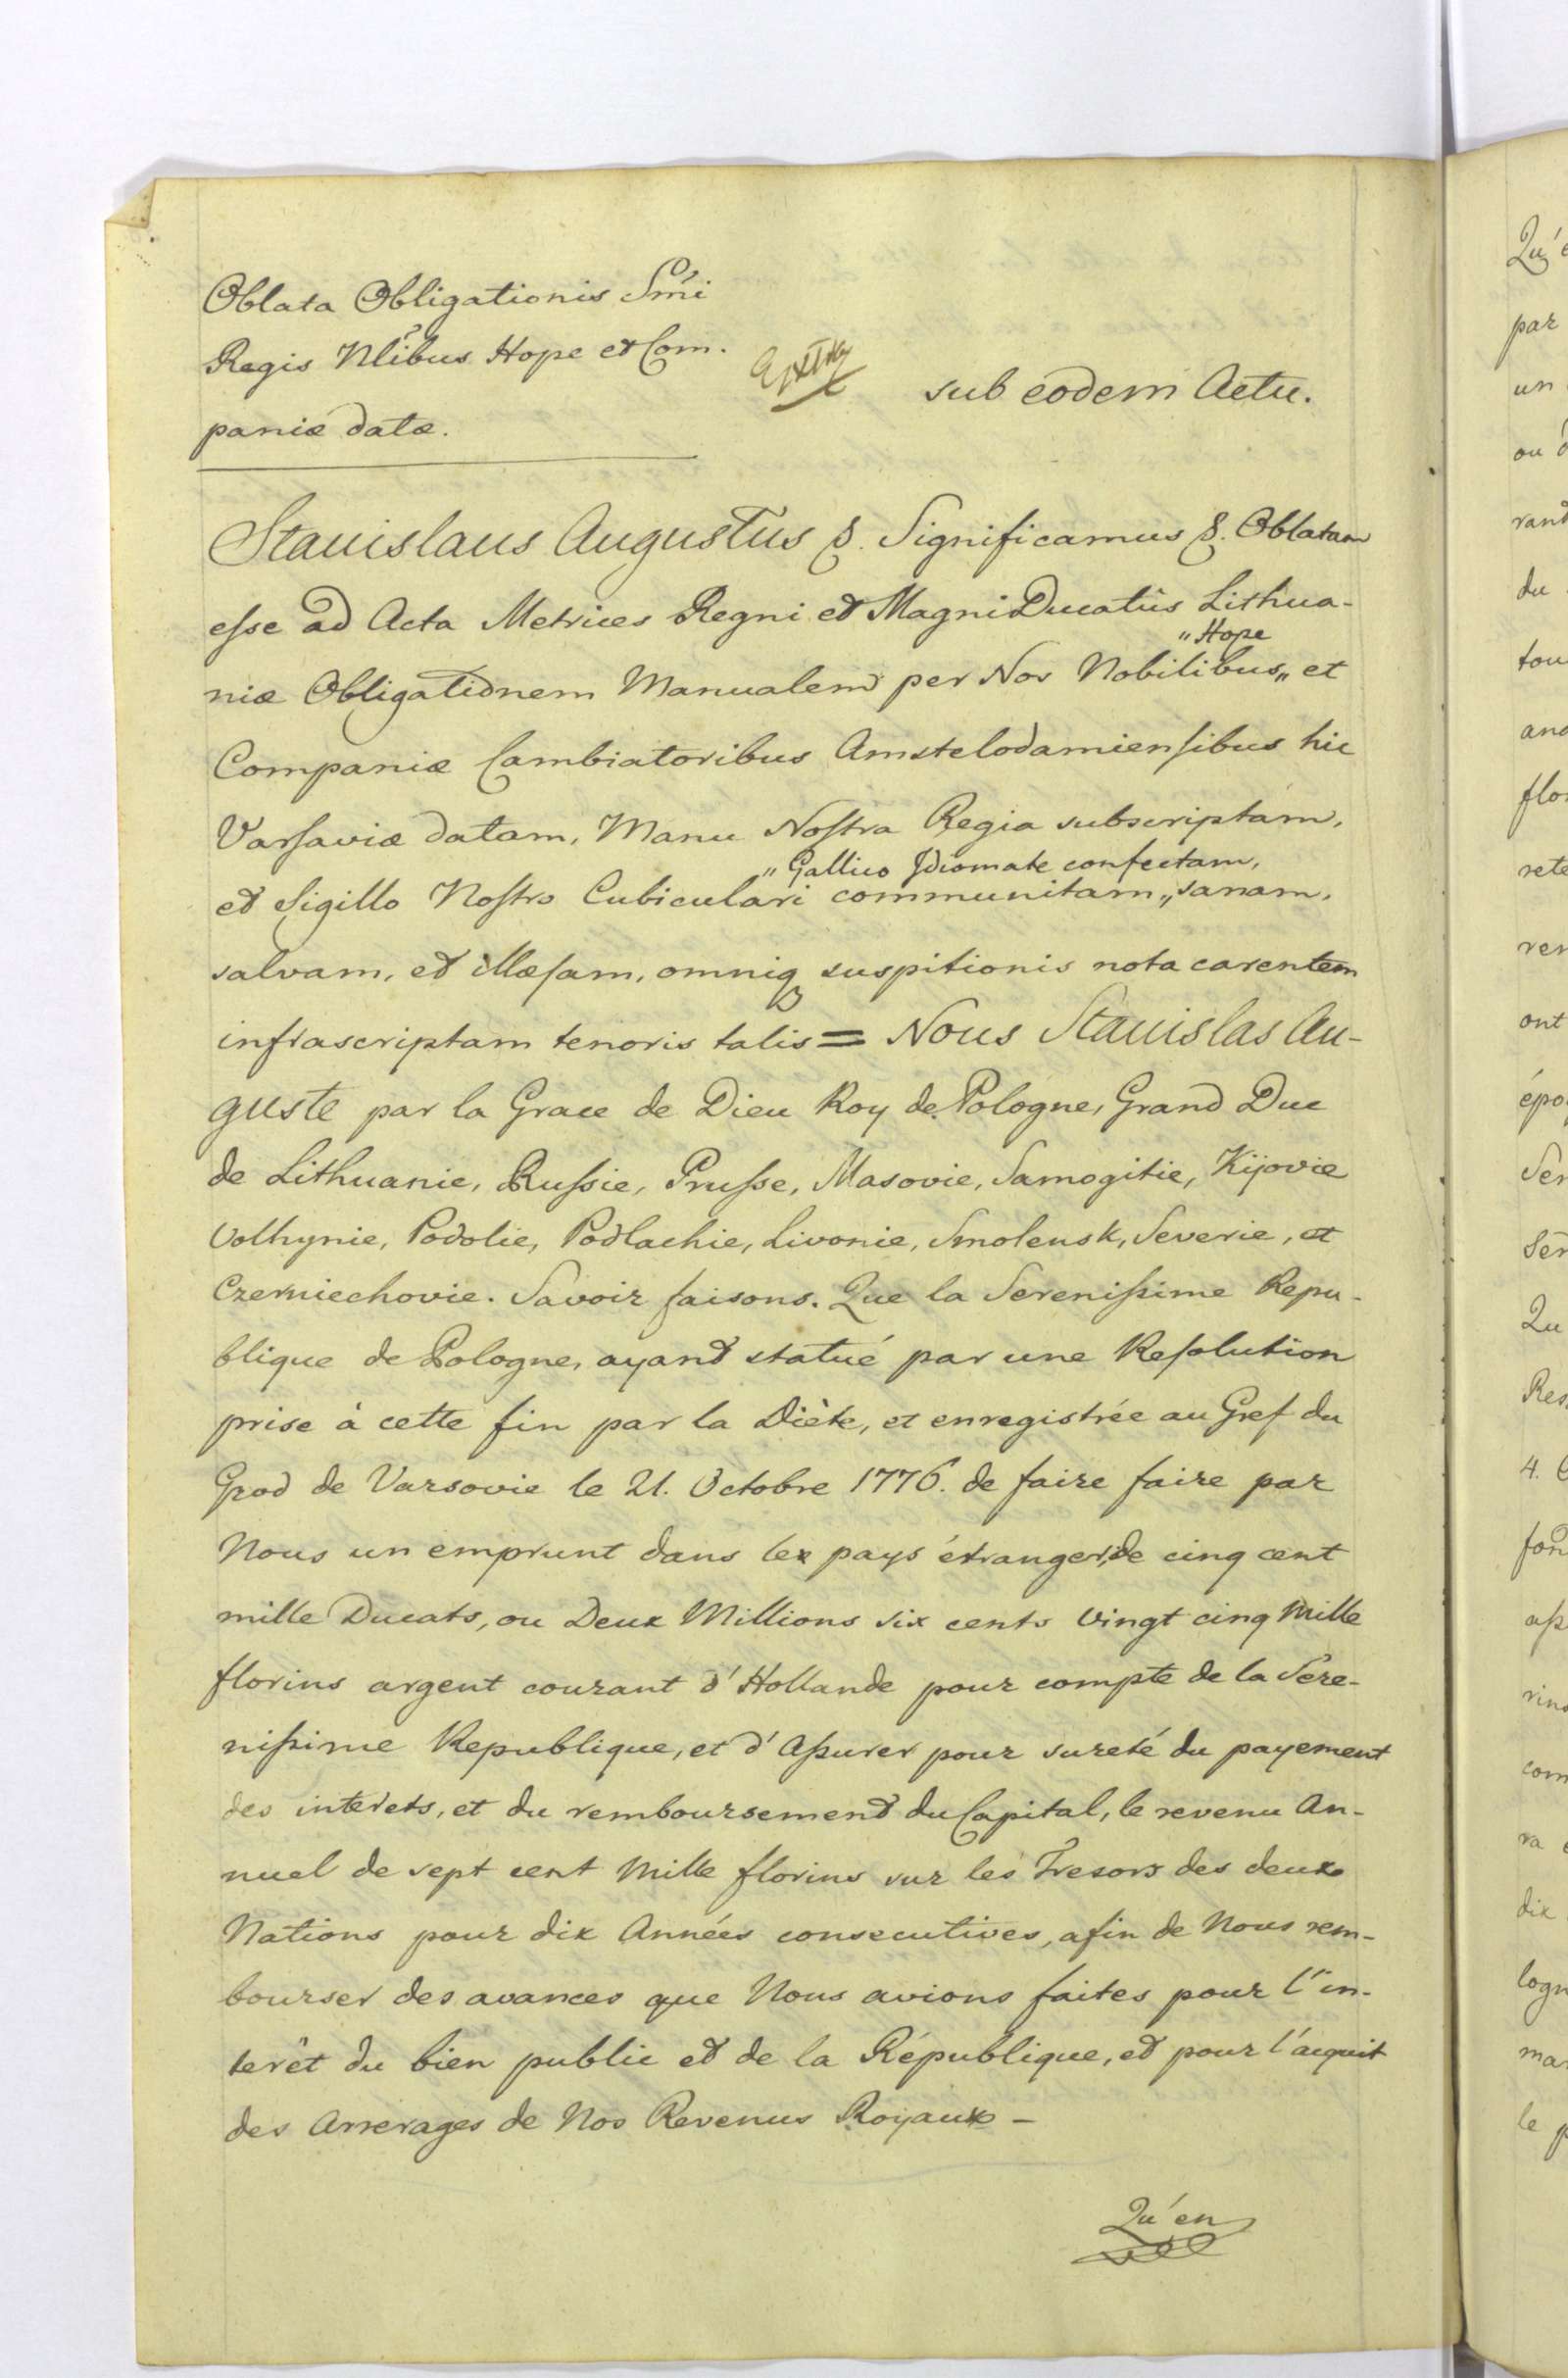 Oblata Obligationis Smi
Regis Nlibus Hope et Com.
paniæ datæ.
sub eodem Actu.
Stanislaus Augustus &. Significamus &. Oblatam
eſse ad Acta Metrices Regni et Magni Ducatûs Lithua-
"Hope
niæ Obligationem Manualem per Nos Nobilibus" et
Companiæ Cambiatoribus Amstelodamienſibus hic
Varſaviæ datam, Manu Noſtra Regia subscriptam,
"Gallico Idiomate confectam,
et Sigillo Noſtro Cubiculari communitam," sanam,
salvam, et illæſam, omniq suspitionis nota carentem
infrascriptam tenoris talis = Nous Stanislas Au-
guste par la Grace de Dieu Roy de Pologne, Grand Duc
de Lithuanie, Ruſsie, Pruſse, Masovie, Samogitie, Kijovie
Volhynie, Podolie, Podlachie, Livonie, Smolensk, Severie, et
Czerniechovie. Savoir faisons. Que la Sereniſsime Repu-
blique de Pologne, ayant statué par une Reſolution
prise à cette fin par la Diète, et enregistrée au Gref du
Grod de Varsovie le 21. Octobre 1776. de faire faire par
Nous un emprunt dans les pays étrangers, de cinq cent
mille Ducats, ou Deux Millions six cents vingt cinq mille
florins argent courant d'Hollande pour compte de la Sere-
niſsime Republique, et d'Aſsurer pour sureté du payement
des interets, et du remboursement du Capital, le revenu An-
nuel de sept cent mille florins sur les Tresors des deux
Nations pour dix Années consecutives, afin de Nous rem-
bourser des avances que Nous avions faites pour l'in-
terêt du bien public et de la République, et pour l'acquit
des Arrerages de Nos Revenus Royaux –
Qu'en